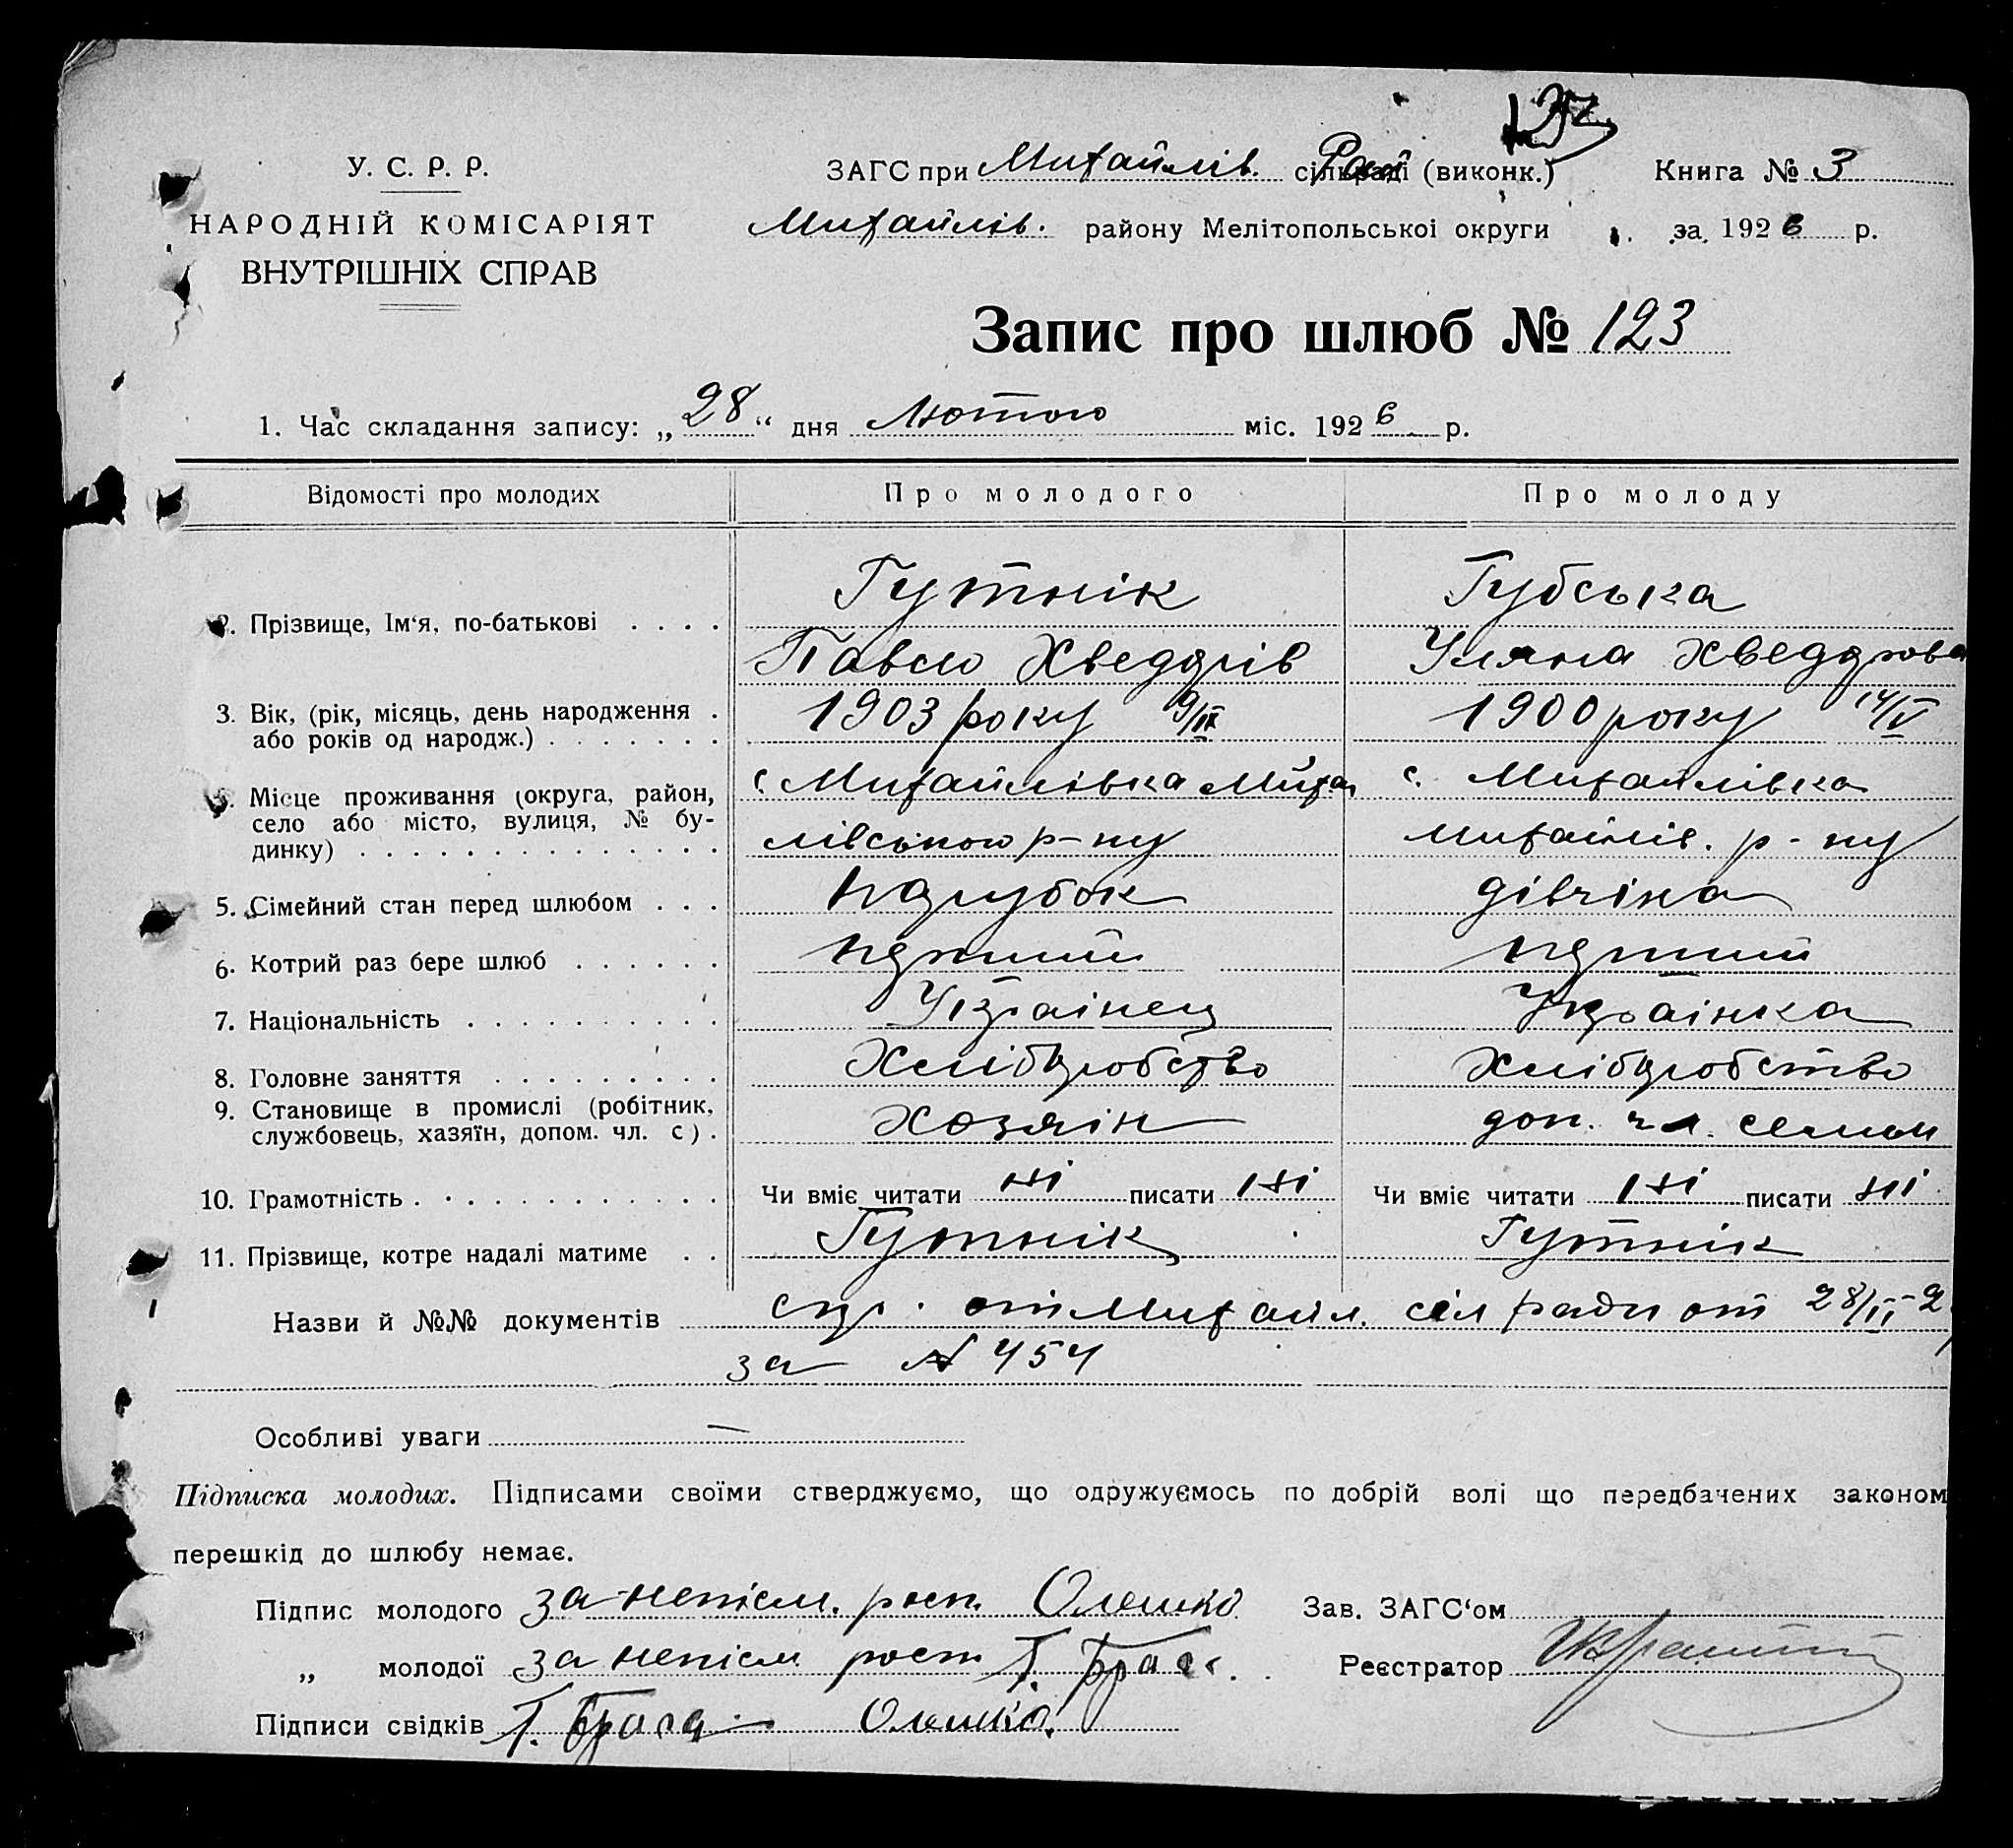 У. С. Р. Р.
НАРОДНІЙ КОМІСАРІЯТ
ВНУТРІШНІХ СПРАВ
ЗАГС при Михайлів. сільраді (виконк.) Книга № 3
Михайлів. району Мелітопольскої округи за 1926 р.
Запис про шлюб № 123
1. Час складання запису: „28“ дня Лютого міс. 1926 р.
Відомості про молодих Про молодого Про молоду
2. Прізвище, Ім‘я, по-батькові . . . .
Гутнік Губська
Павло Хведорів Уляна Хведорова
3. Вік, (рік, місяць, день народження . 1903 року 9/IX 1900 року 14/V
або років од народж.) . . . . . . .
Місце проживання (округа, район, с. Михайлівка Михай с. Михайлівка
село або місто, вулиця, № бу-
динку) . . . . . . . . . . . . . . лівського р-ну Михайлів. р-ну
5. Сімейний стан перед шлюбом . . . парубок дівчіна
6. Котрий раз бере шлюб . . . . . . перший перший
7. Національність . . . . . . . . . . Українец Українка
8. Головне заняття . . . . . . . . . Хліборобство Хліборобство
9. Становище в промислі (робітник,
службовець, хазяїн, допом. чл. с) . Хозяін доп. чл. семьи
10. Грамотність . . . . . . . . . . . . Чи вміє читати ні писати ні Чи вміє читати ні писати ні
11. Прізвище, котре надалі матиме . . Гутнік Гутнік
Назви й №№ документів спр. от Михайл. сілради от 28/II-2
за № 454
Особливі уваги —
Підписка молодих. Підписами своїми стверджуємо, що одружуємось по добрій волі що передбачених законом
перешкід до шлюбу немає.
Підпис молодого за непісм. росп. Олешко Зав. ЗАГС‘ом
„ молодої за непісм росп Т. Брага. Реєстратор
Підписи свідків Т. Брага Олешко.